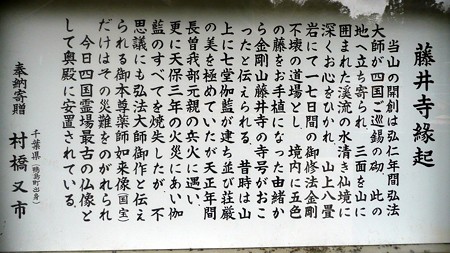 藤井寺縁起
当山の開創は弘仁年間弘法
大師が四国ご巡錫の砌、此の
地へ立ち寄られ、三面を山に
囲まれた渓流の水清き仙境に
深くお心をひかれ、山上八畳
岩にて一七日間の御修法金剛
不壊の道場とし、境内に五色
の藤をお手植になった由緒か
ら金剛山藤井寺の寺号がおこ
ったと伝えられる。昔時は山
上に七堂伽藍が建ち並び荘厳
の美を極めていたが天正年間
長曾我部元親の兵火に遇い、
更に天保三年の火災にあい伽
藍のすべてを焼失したが、不
思議にも弘法大師御作と伝え
られる御本尊薬師如来像(国宝)
だけはその災難をのがれられ
今日四国霊場最古の仏像と
して奥殿に安置されている。
奉納寄贈 千葉県(鴨島町出身) 村橋又市